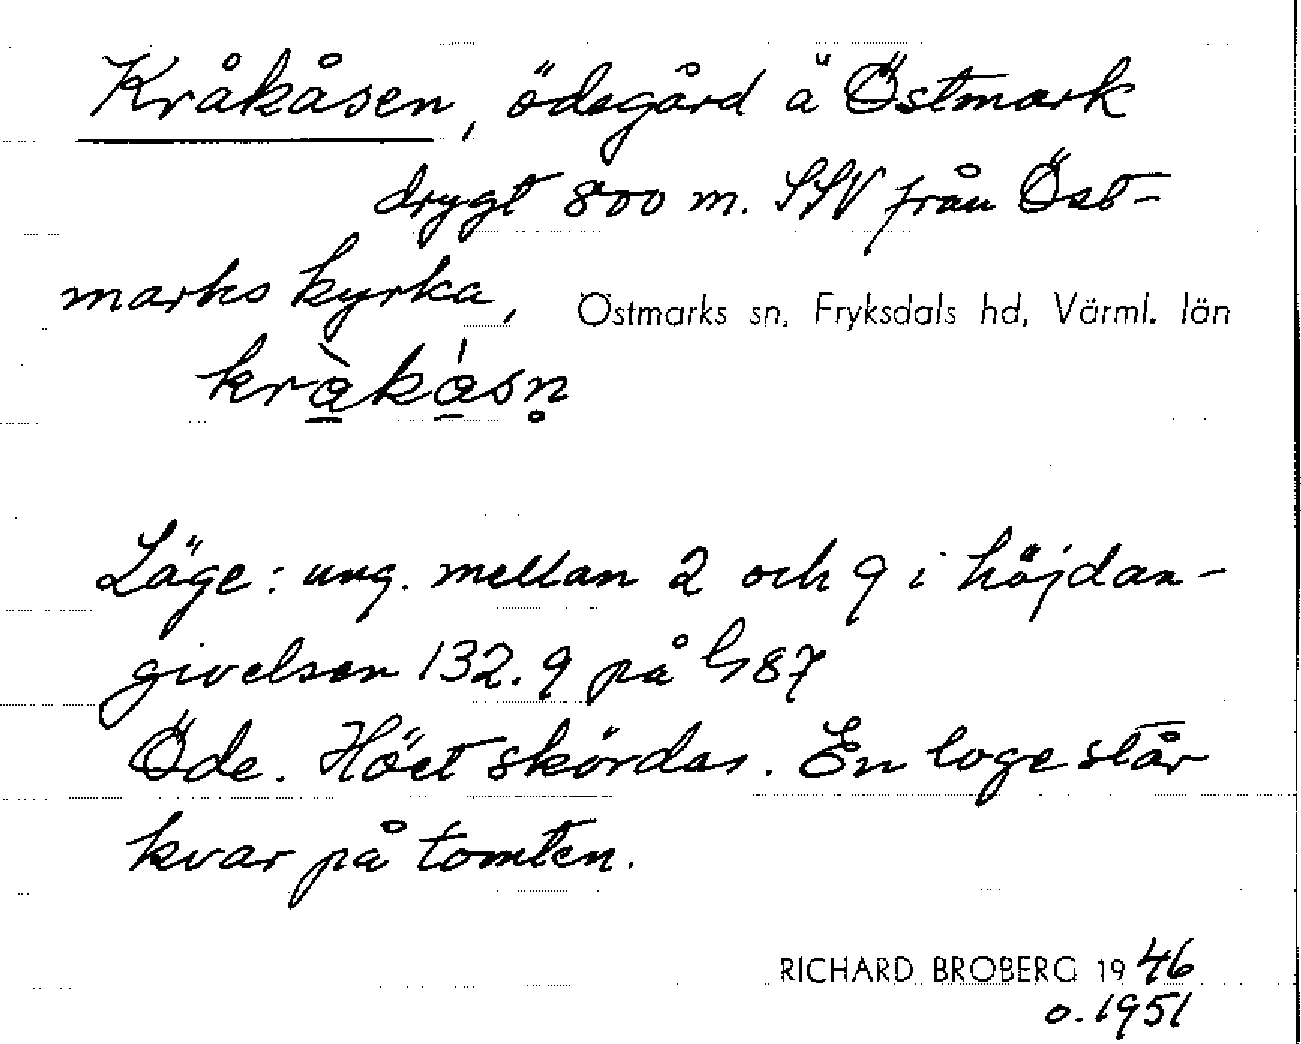 Kråkåsen, ödegård å Östmark
drygt 800 m. SSV från Öst-
marks kyrka, Östmarks sn, Fryksdals hd, Värml. län
krà̱ká̱sn̥
Läge: ung. mellan 2 och 9 i höjdan-
givelsen 132.9 på G87
Öde. Höet skördas. En loge står
kvar på tomten.
RICHARD BROBERG 1946
o. 1951